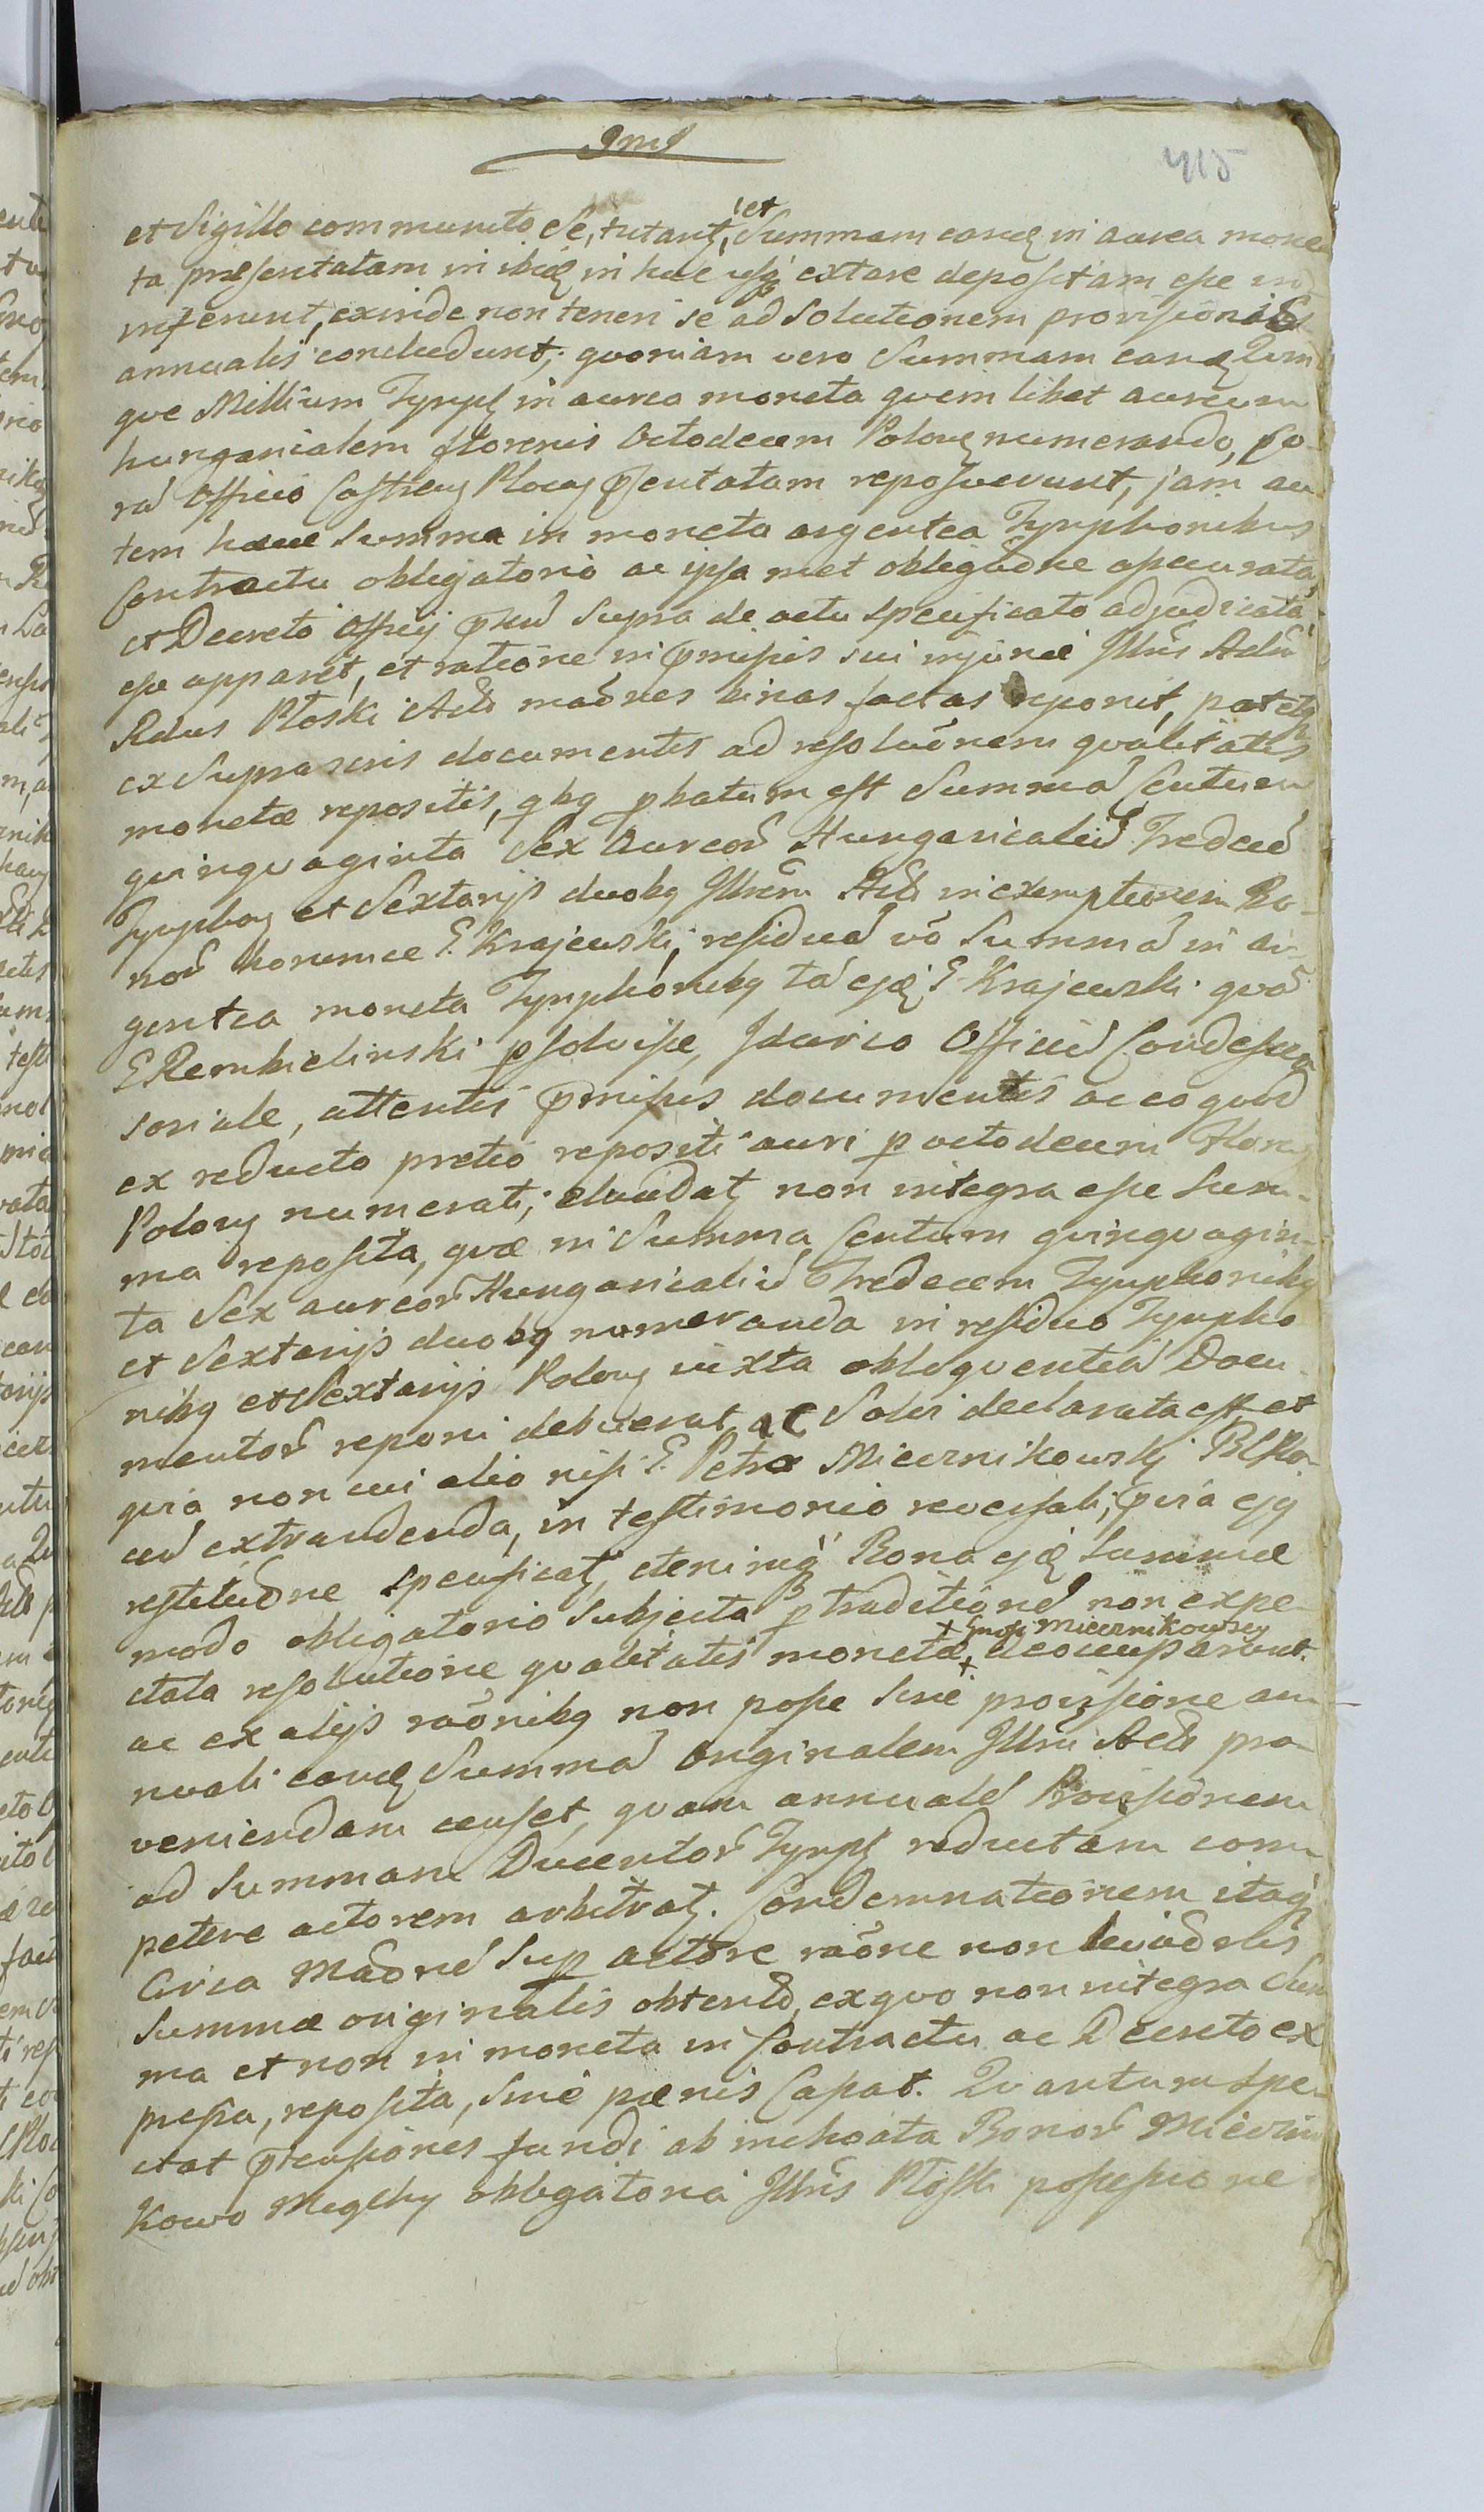 415
et Sigillo communito Se, tutantz, et Summam eandz in aurea mone
ta præsentatam in ibidz in huc usqz extare depositam esse in
inferunt, exinde non teneri se ad Solutionem provisionis
annualis concludunt; quoniam vero Summam eandz Quin
que Millium Tynph in aurea moneta quem libet aureum
hungarialem florenis Octodecem Polonz numerando, co-
rã Officio Castren Plocen pñtatam reposuerunt, jam au
tem hancce Summa in moneta argentea Tynphonibus
Contractu obligatorio ac ipsa met obligaõne assecurata,
et Decreto Officij Supra de actu specificato adjudicata,
esse apparet, et ratione in præmissis sui injuriæ Illris
Rdus Płoski Actr maõnes binas factas reponit, patetqz
ex Suprascris documentis ad resoluõnem qvalitatis
monetæ repositis, qbq pbatum est Summã Centum
quinquaginta Sex Aureor Hungaricaliũ Tredecẽ
Tynphon et Sextarijs duobq Illrem Actr in exemptionem Bo-
nor honumce G. Krajewski, residuã võ Summã in ar
gentea moneta Tynphonibq tã ejdz G. Krajewski qvã
G Rembielinski psolvisse, Idcirco Officiũ Condescen
soriale, attentis præmissis documentis ac eo quod
ex reducto pretio repositi auri p octodecim Floren
Polonz numerati, eludatz non integra esse Sum-
ma reposita, quæ in Summa Centum quinquagin-
ta Sex aureor Hungaricaliũ Tredecem Tynphonibq
et Sextarijs duobq numeranda in residuo Tynpho
nibq et Sextarijs Polonz iuxta obloquentiã Docu
mentor reponi debuerat ac Solvi declarata est, et
quia non cui alio nisi G. Petro Miczrnikowski
extradenda, in testimonio recessali, pria ejq
restituõne specificatz, etenimqz Bona ejdz Summæ
modo obligatorio Subjecta p traditionẽ non expe-
ctata resolutione qvalitatis monetæ, + deoccuparunt.
+ Gnosi Miczrnikowscy
ac ex alijs raõnibq non posse Sine provisione an
nuali eandz Summã Originalem Illrni Actr pro-
veniendam censet, quam annualẽ Provisionem
ad Summam Ducentor Tynph reductam com
petere actorem arbitratz. Condemnationem itaqz
Circa Maõnẽ Sup actore raõne non
Summæ originalis obtentã, ex quo non integra Sum
ma et non in moneta in Contractu ac Decreto ex
pressa, reposita, Sine pænis Capat. Quantum Spe
ctat ptensiones fundi ab inchoata Bonor Miczrni
kowo obligatoria Illris Płoski possessione